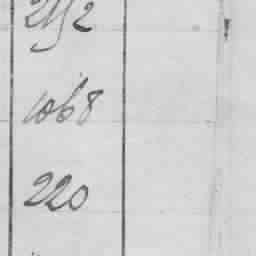 2152
1068
220